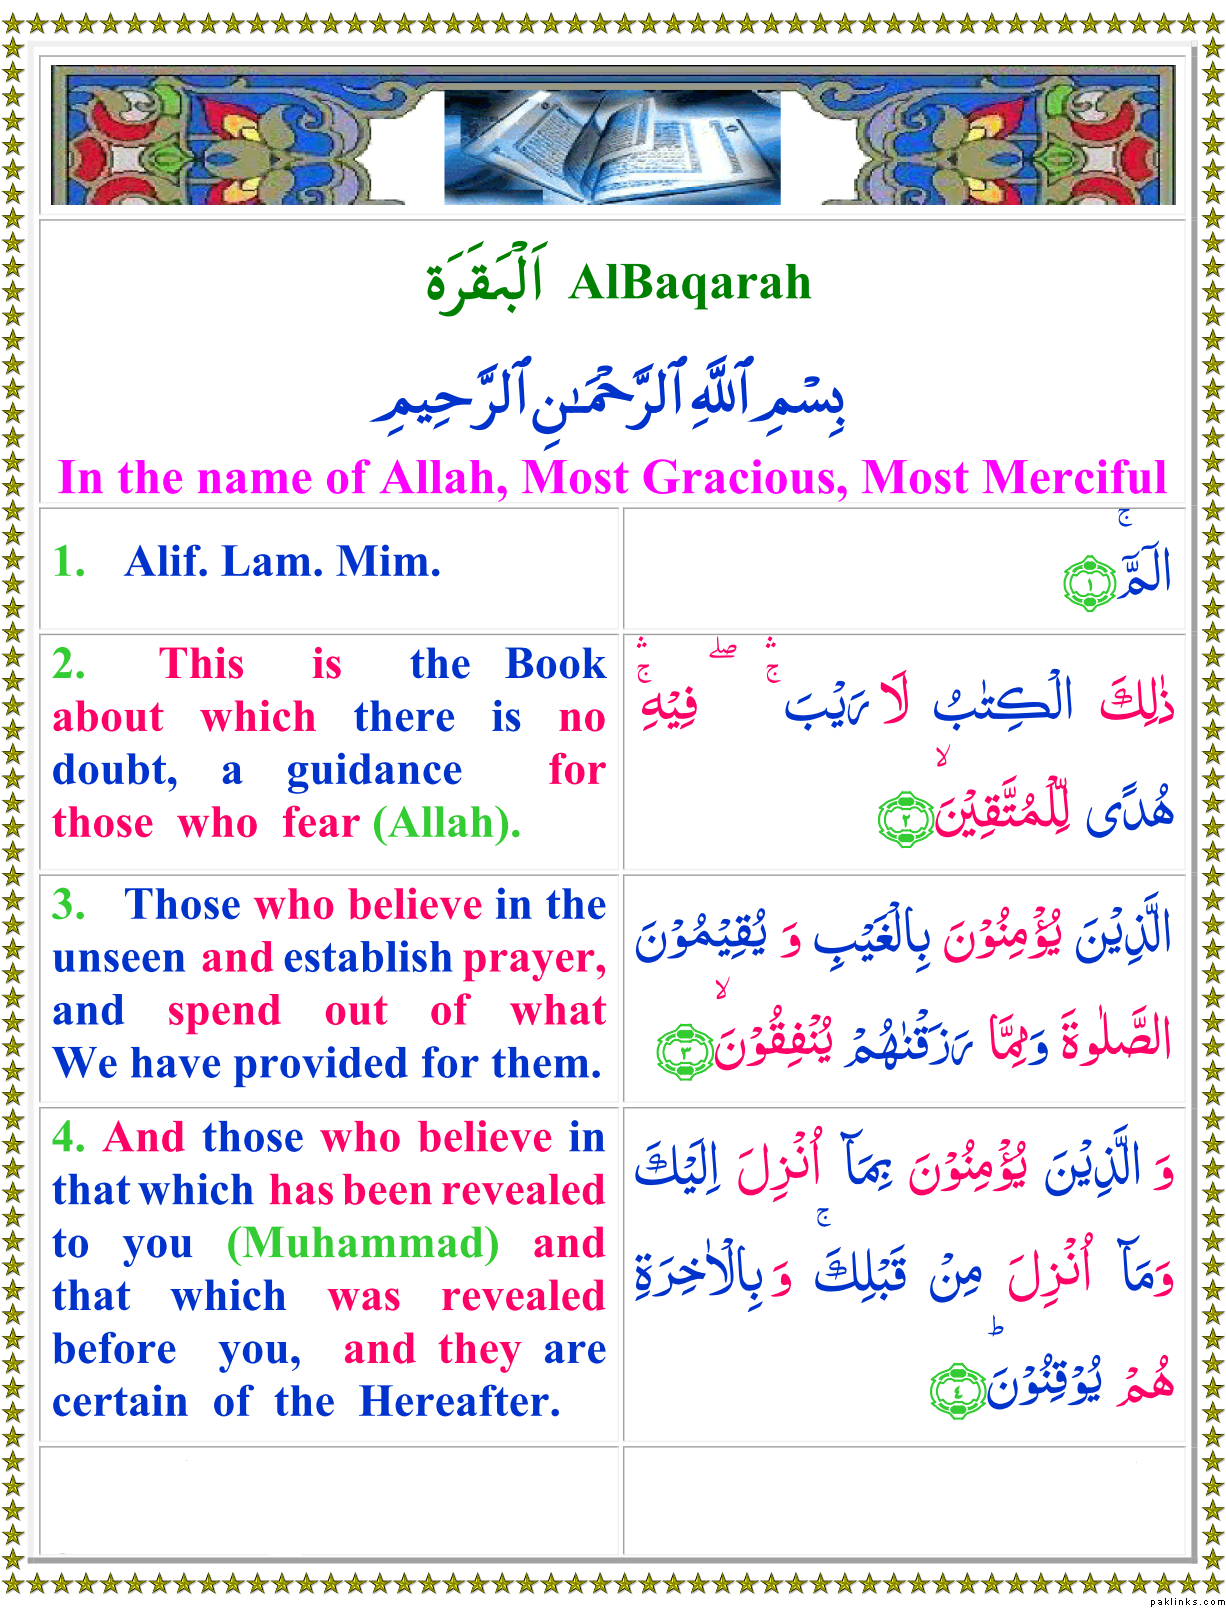 اَلْبَقَرَة AlBaqarah
بِسْمِ ٱللَّهِ ٱلرَّحْمَـٰنِ ٱلرَّحِيمِ
In the name of Allah, Most Gracious, Most Merciful
1. Alif. Lam. Mim.
الٓمّٓ ۚ ۝١
2. This is the Book
about which there is no
doubt, a guidance for
those who fear (Allah).
ذٰلِكَ الْكِتٰبُ لَا رَيْبَ ۛۚ ۖ فِيْهِ ۛۚ
هُدًى لِّلْمُتَّقِيْنَ ۙ ۝٢
3. Those who believe in the
unseen and establish prayer,
and spend out of what
We have provided for them.
الَّذِيْنَ يُؤْمِنُوْنَ بِالْغَيْبِ وَ يُقِيْمُوْنَ
الصَّلٰوةَ وَمِمَّا رَزَقْنٰهُمْ يُنْفِقُوْنَ ۙ ۝٣
4. And those who believe in
that which has been revealed
to you (Muhammad) and
that which was revealed
before you, and they are
certain of the Hereafter.
وَ الَّذِيْنَ يُؤْمِنُوْنَ بِمَاۤ اُنْزِلَ اِلَيْكَ
وَمَاۤ اُنْزِلَ مِنْ قَبْلِكَ ۚ وَ بِالْاٰخِرَةِ
هُمْ يُوْقِنُوْنَ ؕ ۝٤
paklinks.com